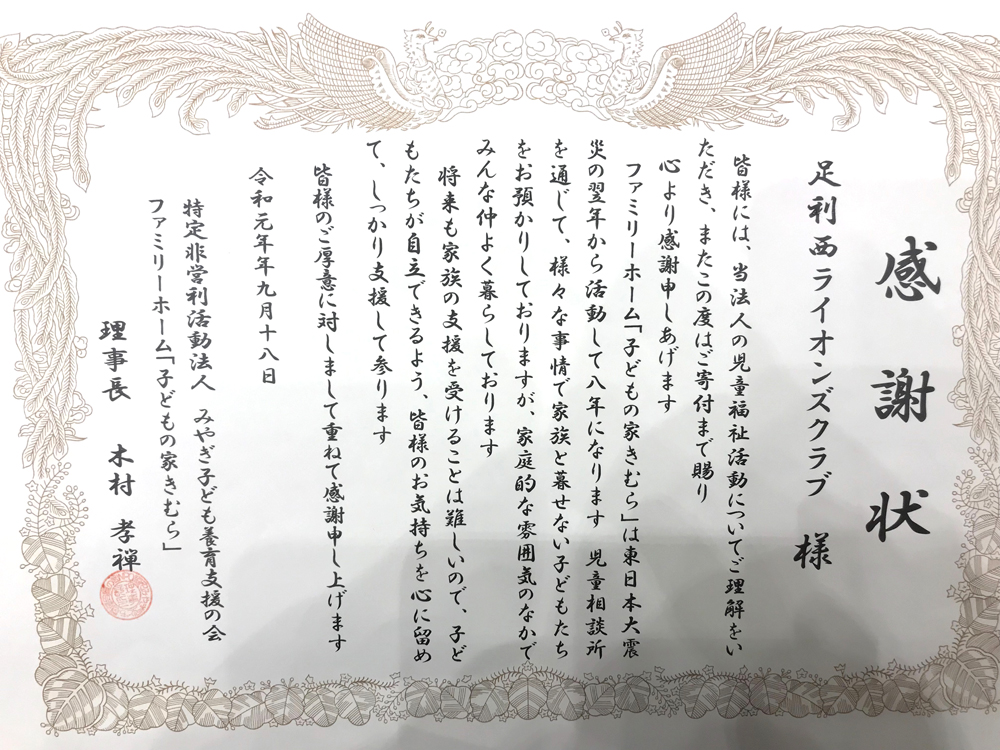 感謝状
足利西ライオンズクラブ 様
皆様には、当法人の児童福祉活動についてご理解をい
ただき、またこの度はご寄付まで賜り
心より感謝申しあげます
ファミリーホーム「子どもの家きむら」は東日本大震
災の翌年から活動して八年になります 児童相談所
を通じて、様々な事情で家族と暮せない子どもたち
をお預かりしておりますが、家庭的な雰囲気のなかで
みんな仲よく暮らしております
将来も家族の支援を受けることは難しいので、子ど
もたちが自立できるよう、皆様のお気持ちを心に留め
て、しっかり支援して参ります
皆様のご厚意に対しまして重ねて感謝申し上げます
令和元年年九月十八日
特定非営利活動法人 みやぎ子ども養育支援の会
ファミリーホーム「子どもの家きむら」
理事長 木村 孝禅